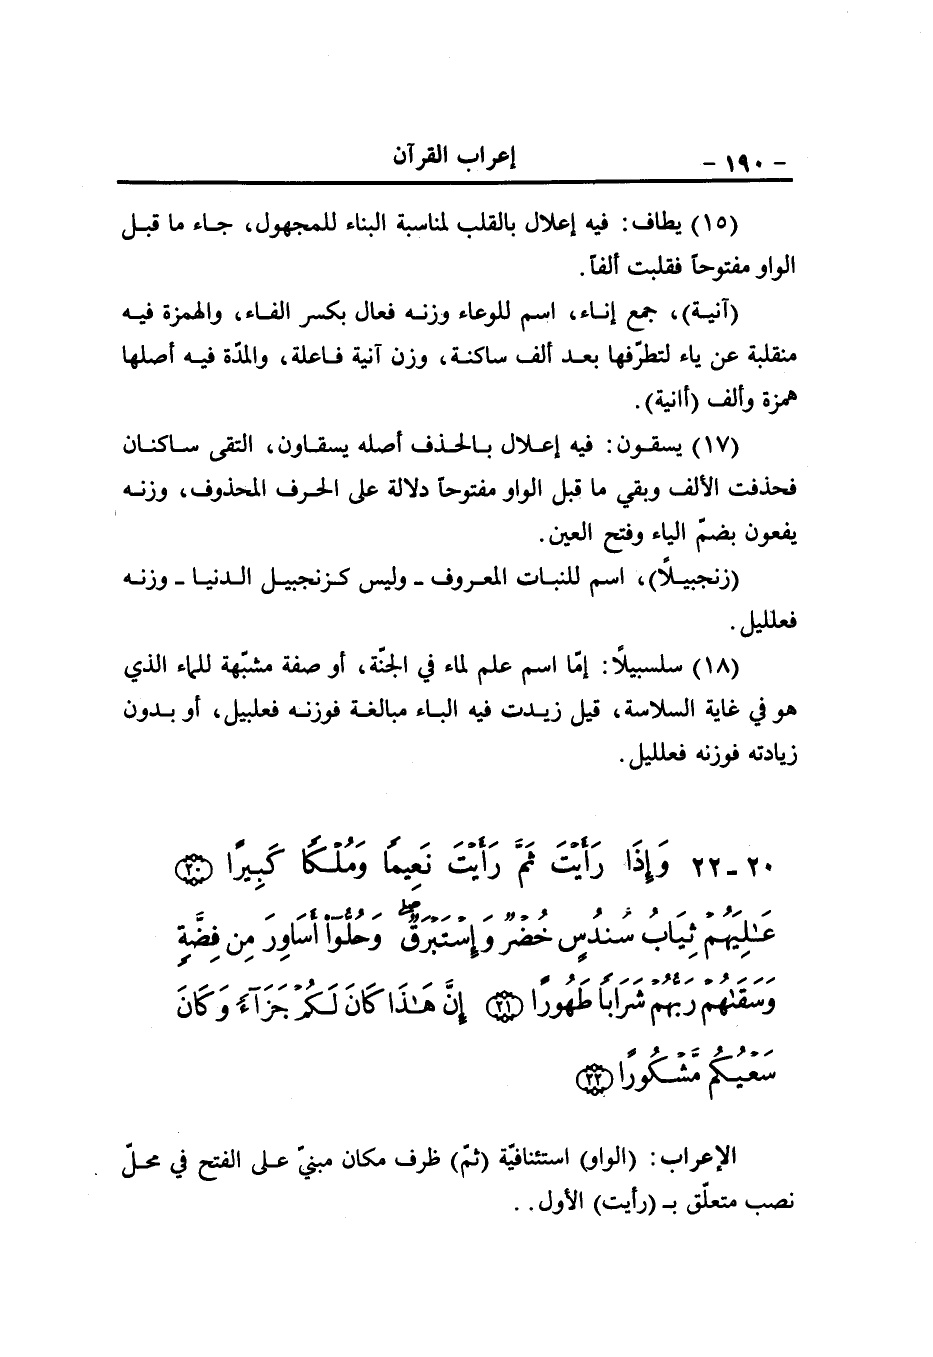 - ١٩٠ - إعراب القرآن
(١٥) يطاف: فيه إعلال بالقلب لمناسبة البناء للمجهول، جاء ما قبل
الواو مفتوحاً فقلبت ألفاً.
(آنية)، جمع إناء، اسم للوعاء وزنه فعال بكسر الفاء، والهمزة فيه
منقلبة عن ياء لتطرّفها بعد ألف ساكنة، وزن آنية فاعلة، والمدّة فيه أصلها
همزة وألف (أانية).
(١٧) يسقون: فيه إعلال بالحذف أصله يسقاون، التقى ساكنان
فحذفت الألف وبقي ما قبل الواو مفتوحاً دلالة على الحرف المحذوف، وزنه
يفعون بضمّ الياء وفتح العين.
(زنجبيلاً)، اسم للنبات المعروف ـ وليس كزنجبيل الدنيا ـ وزنه
فعلليل.
(١٨) سلسبيلاً: إمّا اسم علم لماء في الجنّة، أو صفة مشبّهة للماء الذي
هو في غاية السلاسة، قيل زيدت فيه الباء مبالغة فوزنه فعلبيل، أو بدون
زيادته فوزنه فعلليل.
٢٠ـ٢٢ وَإِذَا رَأَيْتَ ثَمَّ رَأَيْتَ نَعِيمًا وَمُلْكًا كَبِيرًا ﴿٢٠﴾
عَـٰلِيَهُمْ ثِيَابُ سُندُسٍ خُضْرٌ وَإِسْتَبْرَقٌ ۖ وَحُلُّوٓا۟ أَسَاوِرَ مِن فِضَّةٍ
وَسَقَىٰهُمْ رَبُّهُمْ شَرَابًا طَهُورًا ﴿٢١﴾ إِنَّ هَـٰذَا كَانَ لَكُمْ جَزَآءً وَكَانَ
سَعْيُكُم مَّشْكُورًا ﴿٢٢﴾
الإعراب: (الواو) استئنافيّة (ثمّ) ظرف مكان مبنيّ على الفتح في محلّ
نصب متعلّق بـ (رأيت) الأول..